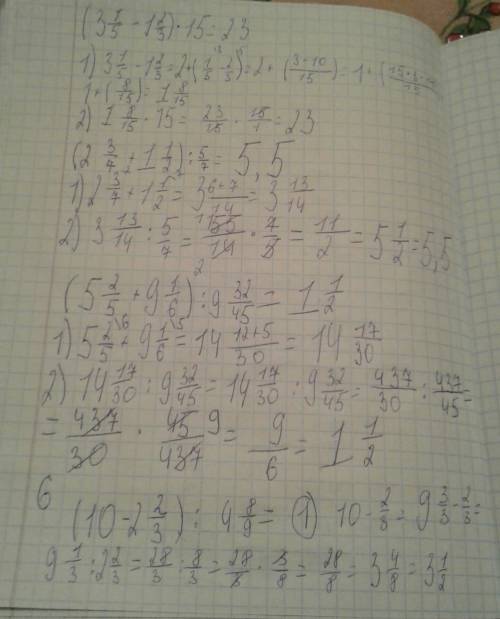 (3 1/5 - 1 2/3) · 15 = 23
1) 3 1/5 - 1 2/3 = 2 + (1/5 - 2/3) = 2 + (3 + 10/15) = 1 + (15 + 3 -
1 + (8/15) = 1 8/15
2) 1 8/15 · 15 = 23/15 · 15/1 = 23
(2 3/7 + 1 1/2) : 5/7 = 5,5
1) 2 3/7 + 1 1/2 = 3 6+7/14 = 3 13/14
2) 3 13/14 : 5/7 = 55/14 · 7/5 = 11/2 = 5 1/2 = 5,5
(5 2/5 + 9 1/6) : 9 32/45 = 1 1/2
1) 5 2/5 + 9 1/6 = 14 12+5/30 = 14 17/30
2) 14 17/30 : 9 32/45 = 14 17/30 : 9 32/45 = 437/30 : 437/45 =
= 437/30 · 45/437 = 9/6 = 1 1/2
(10 - 2 2/3) : 4 8/9 = 1) 10 - 2/3 = 9 3/3 - 2/3 =
9 1/3 : 2 2/3 = 28/3 : 8/3 = 28/3 · 3/8 = 28/8 = 3 4/8 = 3 1/2